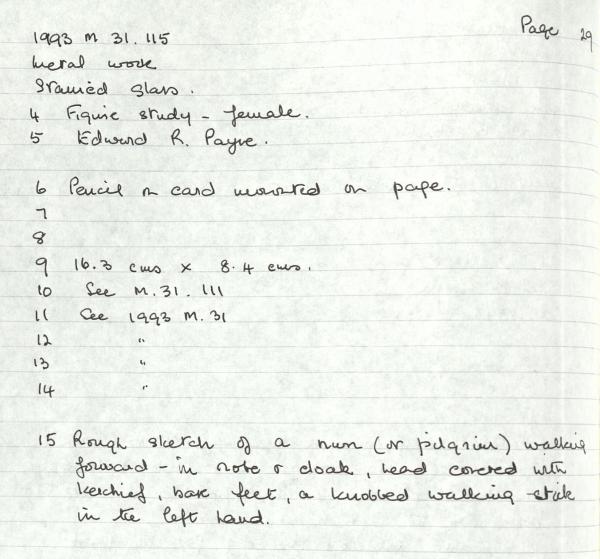 Page 29
1993 M. 31. 115
Metal work
Stained Glass.
4 Figure study - female.
5 Edward R. Payne.
6 Pencil on card mounted on page.
7
8
9 16.3 cms x 8.4 cms.
10 See M. 31. 111
11 See 1993 M. 31
12 "
13 "
14 "
15 Rough sketch of a nun (or pilgrim) walking
forward - in robe & cloak, head covered with
kerchief, bare feet, a knobbed walking stick
in the left hand.